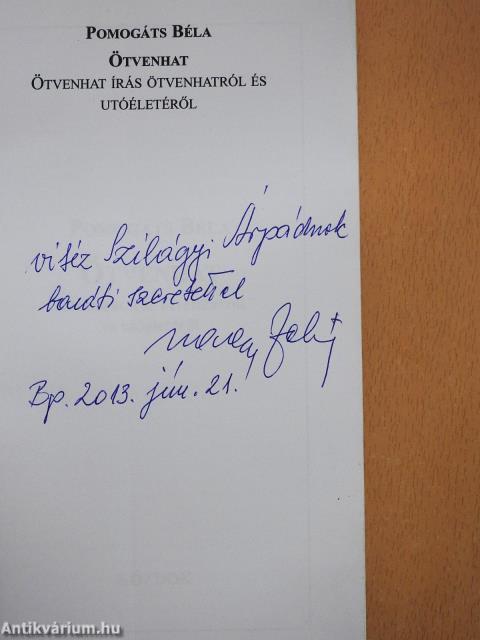 POMOGÁTS BÉLA
ÖTVENHAT
ÖTVENHAT ÍRÁS ÖTVENHATRÓL ÉS
UTÓÉLETÉRŐL
vitéz Szilágyi Árpádnak
baráti szeretettel
Bp. 2013. jún. 21.
Antikvárium.hu